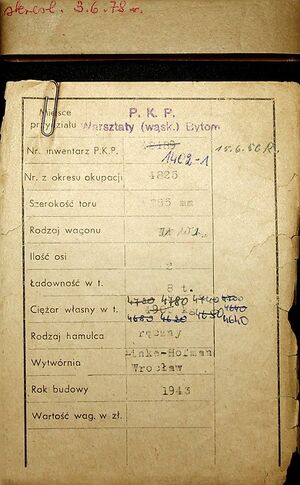 skreśl. 3.6.78 r.
Miejsce przydziału P. K. P.
Warsztaty (wąsk.) Bytom
Nr. inwentarz P.K.P. 1402-1 15.6.56 R.
Nr. z okresu okupacji 4825
Szerokość toru 785 mm
Rodzaj wagonu
Ilość osi 2
Ładowność w t. 8 t.
4780 4740
Ciężar własny w t.
4680 4620 4650 4640
Rodzaj hamulca ręczny
Wytwórnia Linke-Hofman
Wrocław
Rok budowy 1943
Wartość wag. w zł.